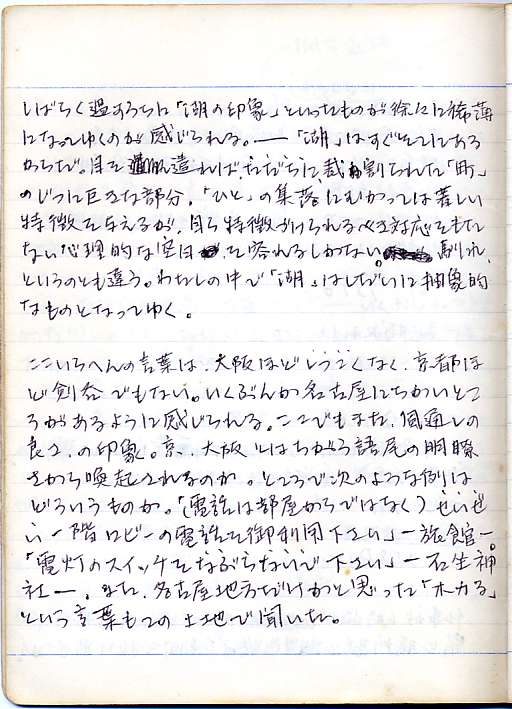 しばらく過すうちに「湖の印象」といったものが徐々に稀薄
になってゆくのが感じられる。——「湖」はすぐそこにある
からだ。目を遣れば、ただちに、裁ち割られた「町」
のじつに巨きな部分、「ひと」の集落にむかっては著しい
特徴を与えるが、自ら特徴づけられるべき対応をもた
ない心理的な空白を容れるしかない。馴れ、
というのとも違う。わたしの中で「湖」はしだいに抽象的
なものとなってゆく。
ここいらへんの言葉は、大阪ほど くなく、京都ほ
ど剣呑でもない。いくぶんか名古屋にちかいとこ
ろがあるように感じられる。ここでもまた、風通しの
良さ、の印象。京、大阪とはちがう語尾の明瞭
さから喚起されるのか。ところで次のような例は
どういうものか。「(電話は部屋からではなく)せいぜ
い一階ロビーの電話を御利用下さい」—旅館—。
「電灯のスイッチをなぶらないで下さい」—石生神
社—。また、名古屋地方だけかと思った「ホカる」
という言葉もこの土地で聞いた。